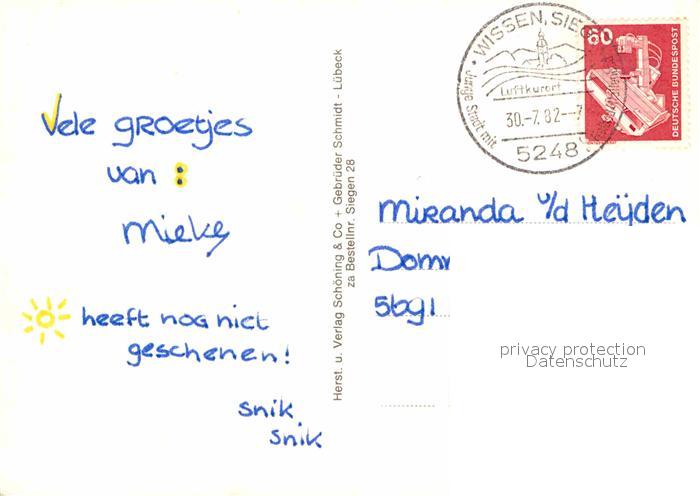 Vele gROetjes
van :
Mieke
heeft nog niet
geschenen!
snik
snik
Herst. u. Verlag Schöning & Co + Gebrüder Schmidt · Lübeck
za Bestellnr. Siegen 28
WISSEN, SIEG
Luftkurort
30.-7.82--7
5248
Junge Stadt mit
60
DEUTSCHE BUNDESPOST
Miranda v/d Heijden
Domm
5691
privacy protection
Datenschutz